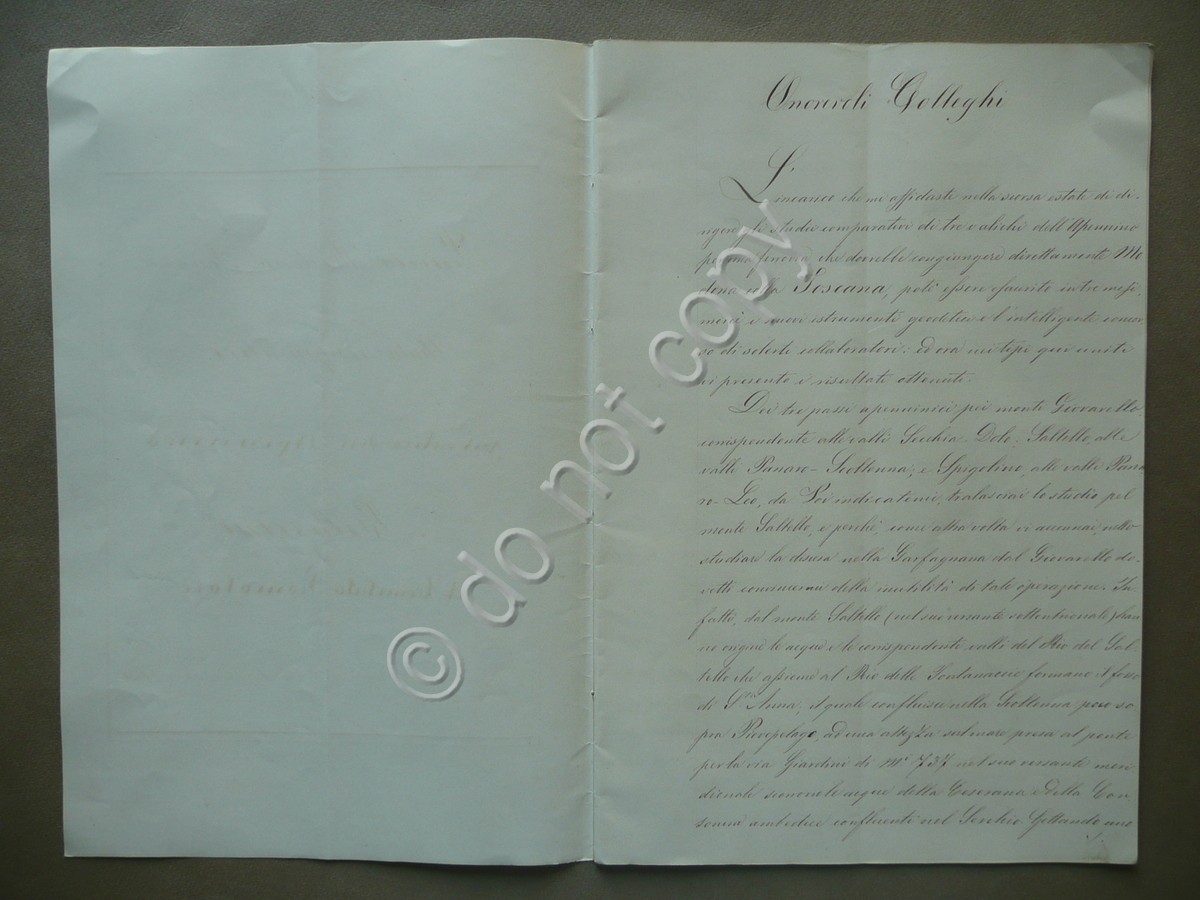 Onorevoli Colleghi
L'incarico che mi affidaste nella scorsa estate di di-
rigere gli studi comparativi di tre valichi dell'Apennino
per una ferrovia che dovrebbe congiungere direttamente Mo
dena colla Toscana, potè essere esaurito in tre mesi,
mercè i nuovi istrumenti geodetici e l'intelligente concor
so di solerti collaboratori; ed ora nei tipi qui uniti
vi presento i risultati ottenuti.
Dei tre passi apenninici pei monti Giovarello,
corrispondente alle valli Secchia-Dolo, Saltello, alle
valli Panaro-Scoltenna; e Spigolino, alle valli Pana
ro-Leo, da Voi indicatemi, tralasciai lo studio pel
monte Saltello, e perchè, come altra volta vi accennai, nello
studiare la discesa nella Garfagnana dal Giovarello do-
vetti convincermi della inutilità di tale operazione. In
fatti, dal monte Saltello (nel suo versante settentrionale) han
no origine le acque e le corrispondenti valli del Rio del Sal-
tello che assieme al Rio delle Fontanaccie formano il fosso
di S.ta Anna, il quale confluisce nella Scoltenna poco so
pra Pievepelago, ad una altezza sul mare presa al ponte
per la via Giardini di M.i 737 nel suo versante meri
dionale scorrono le acque della e della
ambedue confluenti nel Serchio. Gettando uno
do not copy
©